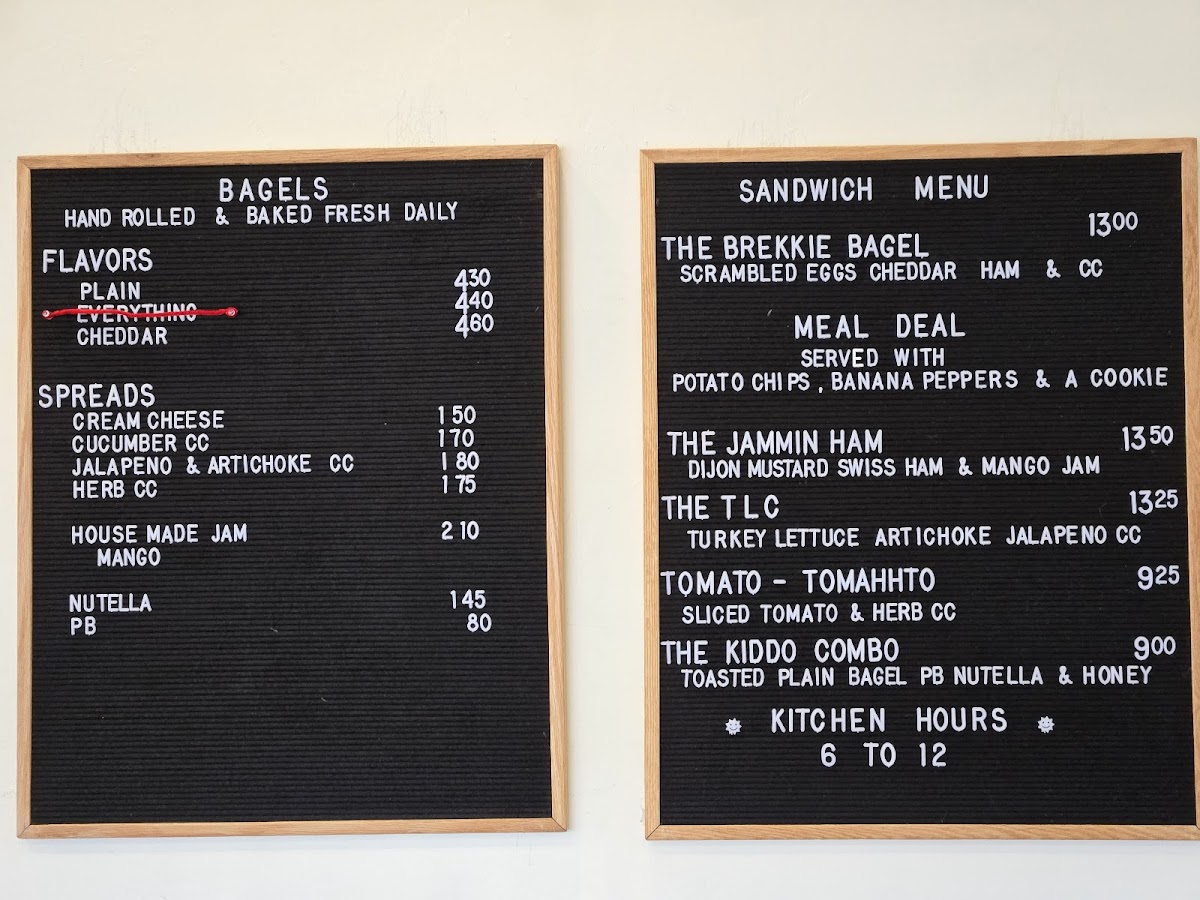 BAGELS
HAND ROLLED & BAKED FRESH DAILY
FLAVORS
PLAIN 430
EVERYTHING 440
CHEDDAR 460
SPREADS
CREAM CHEESE 150
CUCUMBER CC 170
JALAPENO & ARTICHOKE CC 180
HERB CC 175
HOUSE MADE JAM 210
MANGO
NUTELLA 145
PB 80
SANDWICH MENU
THE BREKKIE BAGEL 1300
SCRAMBLED EGGS CHEDDAR HAM & CC
MEAL DEAL
SERVED WITH
POTATO CHIPS, BANANA PEPPERS & A COOKIE
THE JAMMIN HAM 1350
DIJON MUSTARD SWISS HAM & MANGO JAM
THE TLC 1325
TURKEY LETTUCE ARTICHOKE JALAPENO CC
TOMATO - TOMAHHTO 925
SLICED TOMATO & HERB CC
THE KIDDO COMBO 900
TOASTED PLAIN BAGEL PB NUTELLA & HONEY
KITCHEN HOURS
6 TO 12